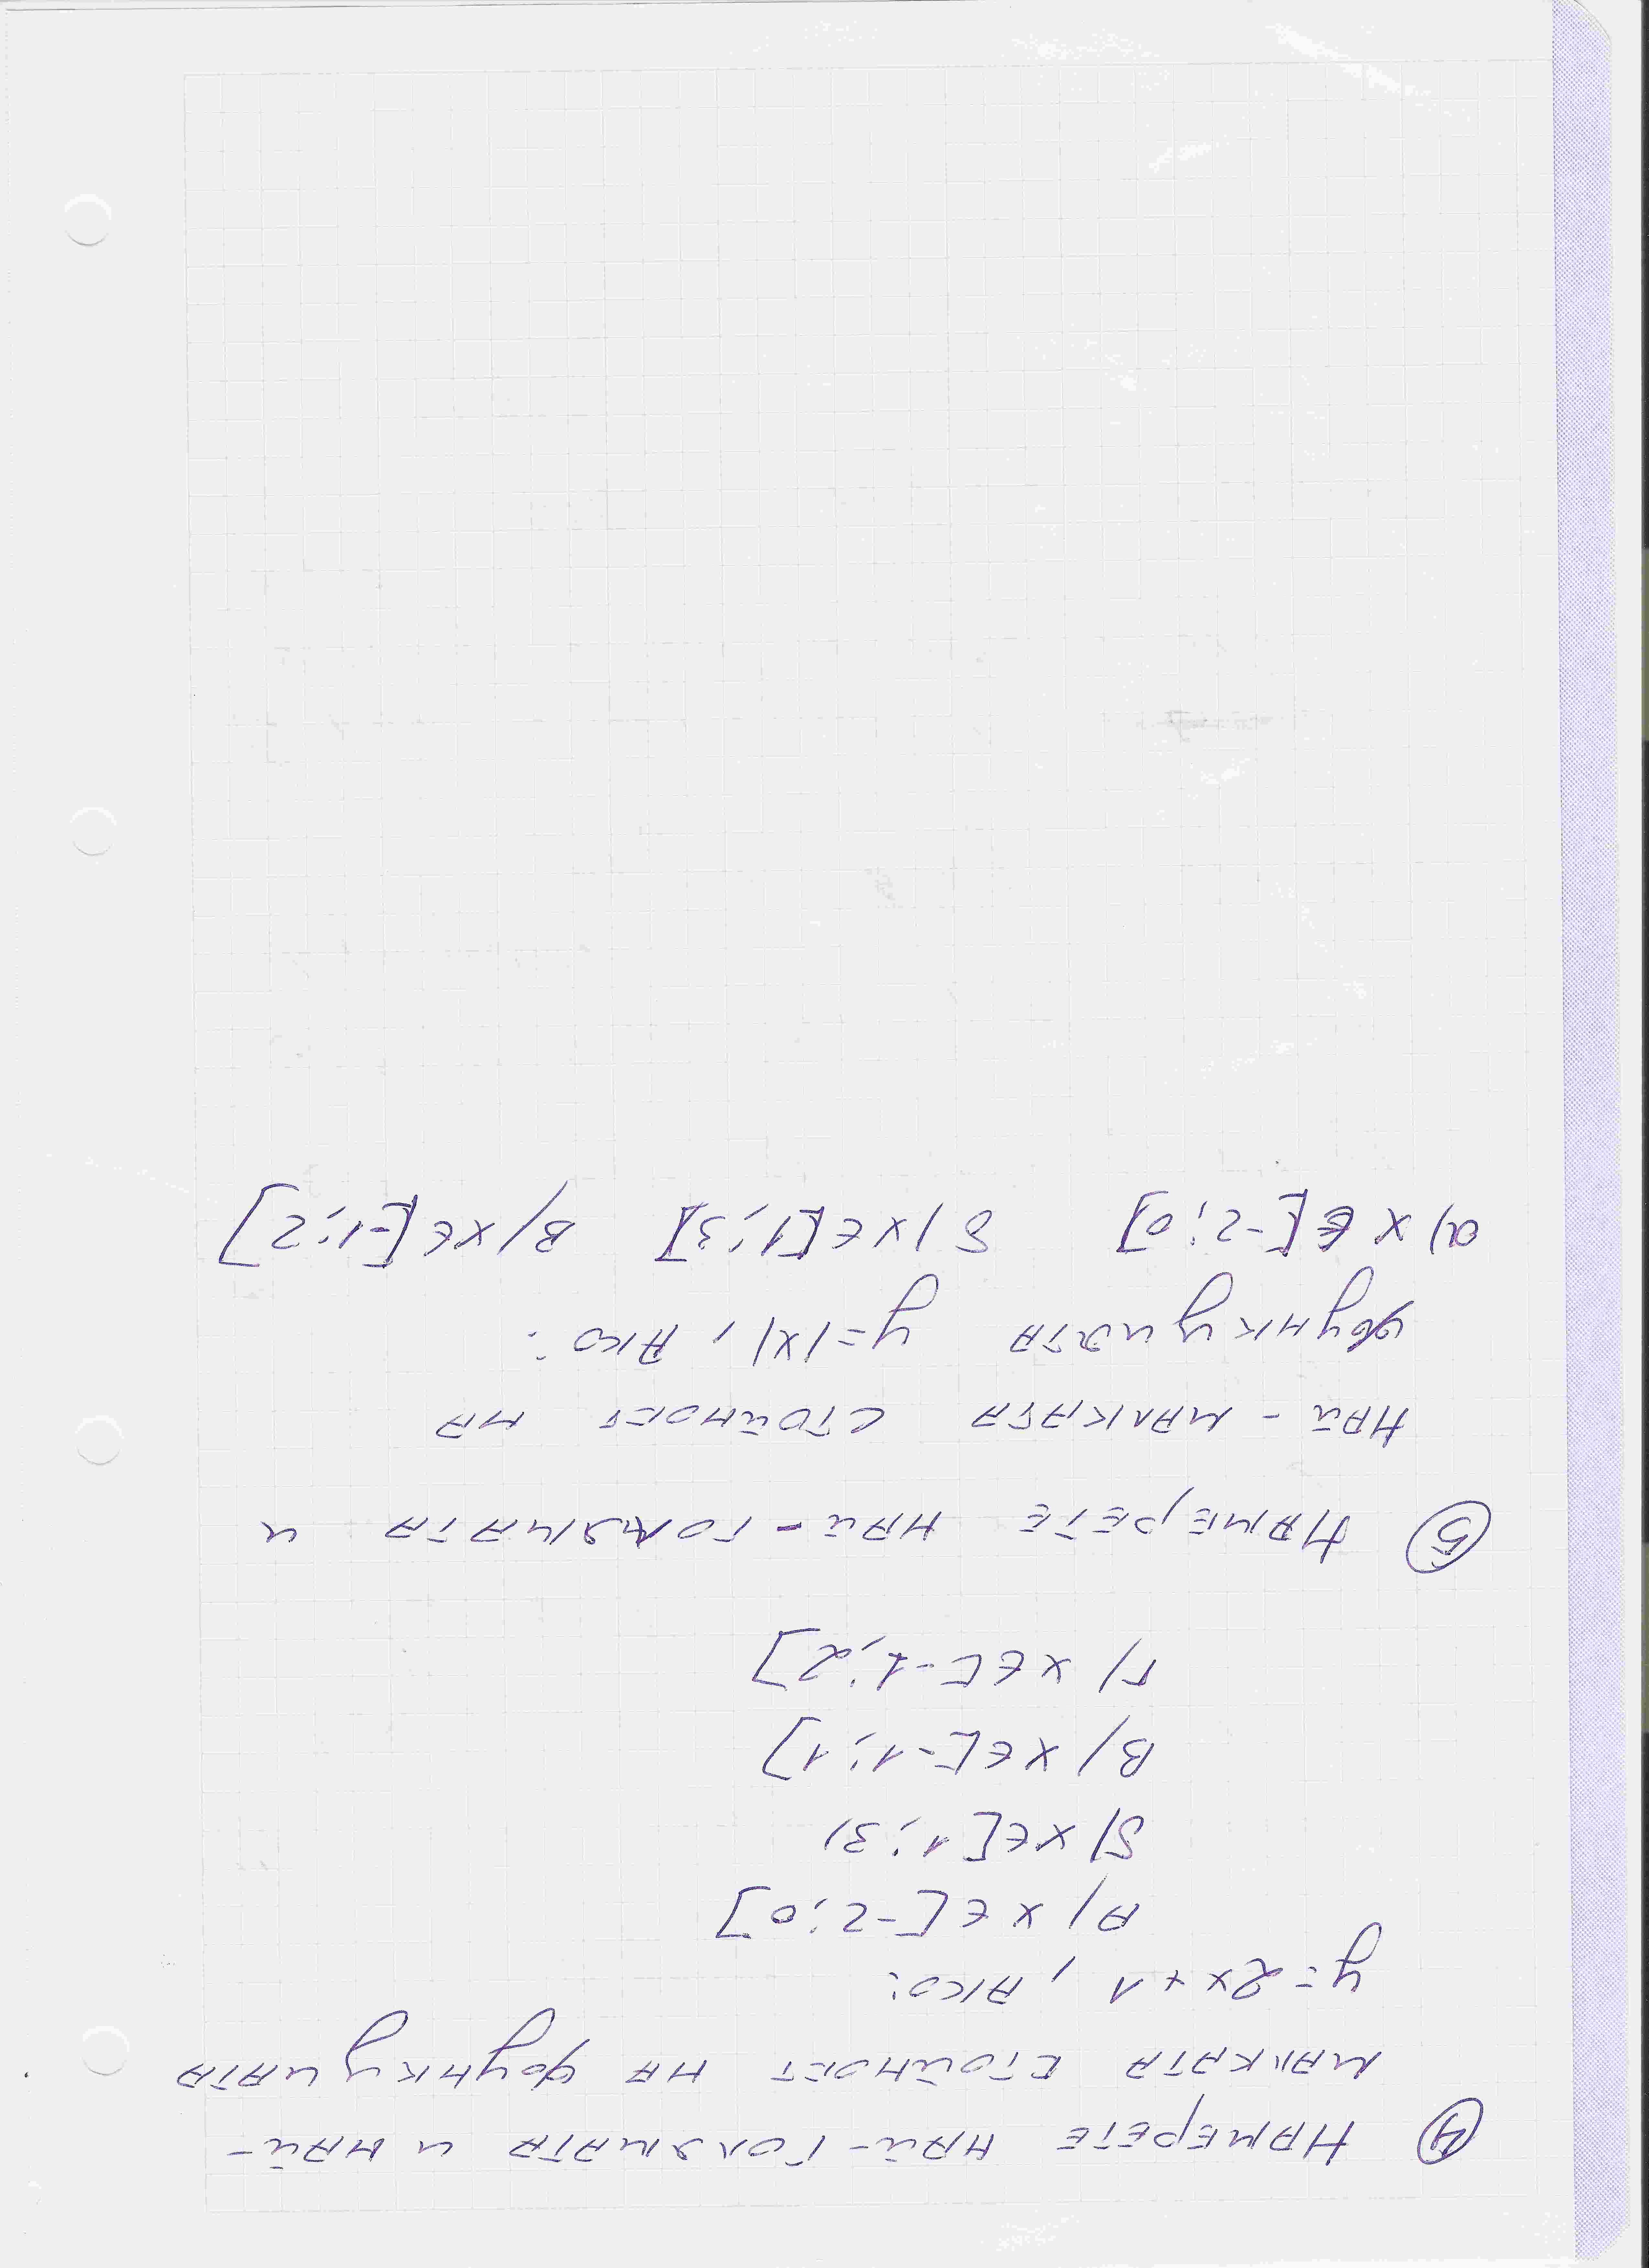 ④ НАМЕРЕТЕ НАЙ-ГОЛЯМАТА И НАЙ-
МАЛКАТА СТОЙНОСТ НА ФУНКЦИЯТА
y=2x+1, АКО:
А) x∈[-2;0]
Б) x∈[1;3)
В) x∈[-1;1]
Г) x∈[-1;2]
⑤ НАМЕРЕТЕ НАЙ-ГОЛЯМАТА И
НАЙ-МАЛКАТА СТОЙНОСТ НА
ФУНКЦИЯТА y=|x|, АКО:
а) x∈[-2;0] б) x∈[1;3] В) x∈[-1;2]